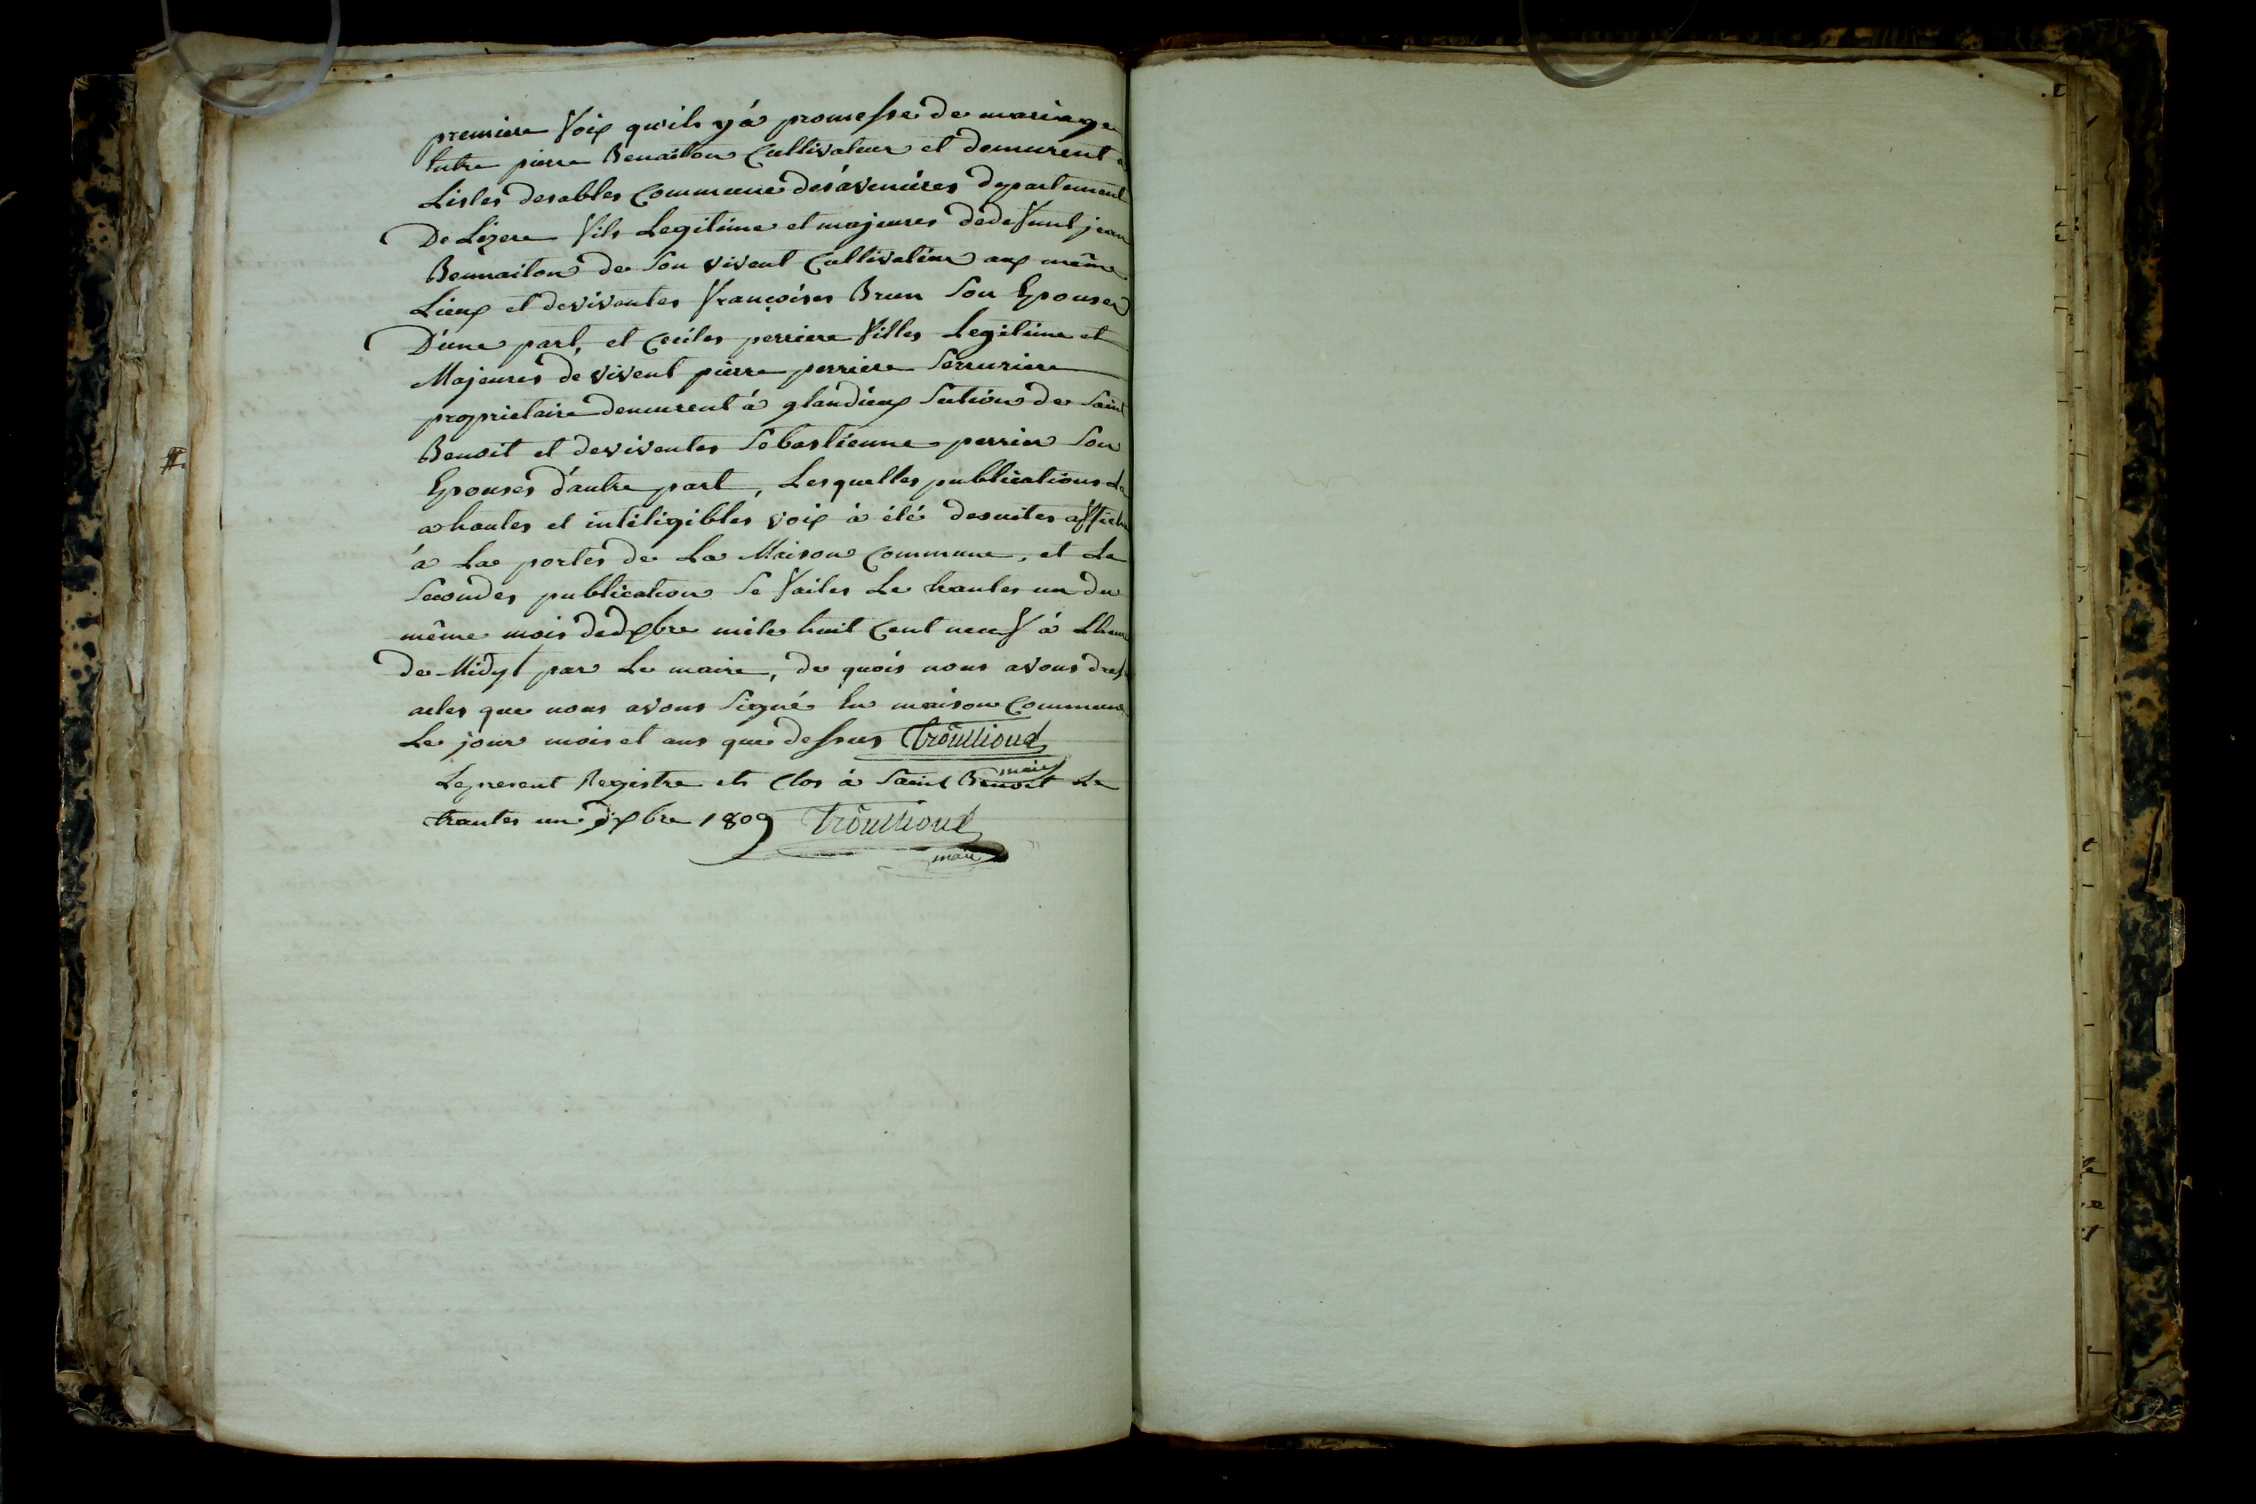 premiere Voix quils y á promesse de mariage
Entre pierre Benaiton Cultivateur et demurent a
Lisles desables Commune des avenieres departement
De Lizere fils Legitime et majeures dedefunt jean
Bennaiton de son vivent Cultivateur aux même
Lieux et devivantes françoises Brun son Epouses
D'une part, et Ceciles perriere filles Legitime et
Majeures de vivent pierre perriere Serruriere
proprietaire demurent á glandieux Section de Saint
Benoit et deviventes Sebastienne perrier son
Epouses d'autre part, Lesquelles publications
a hautes et inteligibles voix à été desuites affiche
á La portes de La Maison Commune, et La
Secondes publication Se faites Le trantes un du
même mois dedxbre miles huit Cent neuf á Lheure
de Midyt par Le maire, de quois nous avons
actes que nous avons Signé En maison Commune
Le jour mois et ans que dessus trouillioud
maire
Le present Registre ets Clos á Saint Benoit Le
trantes un dxbre 1809 trouillioud
maire